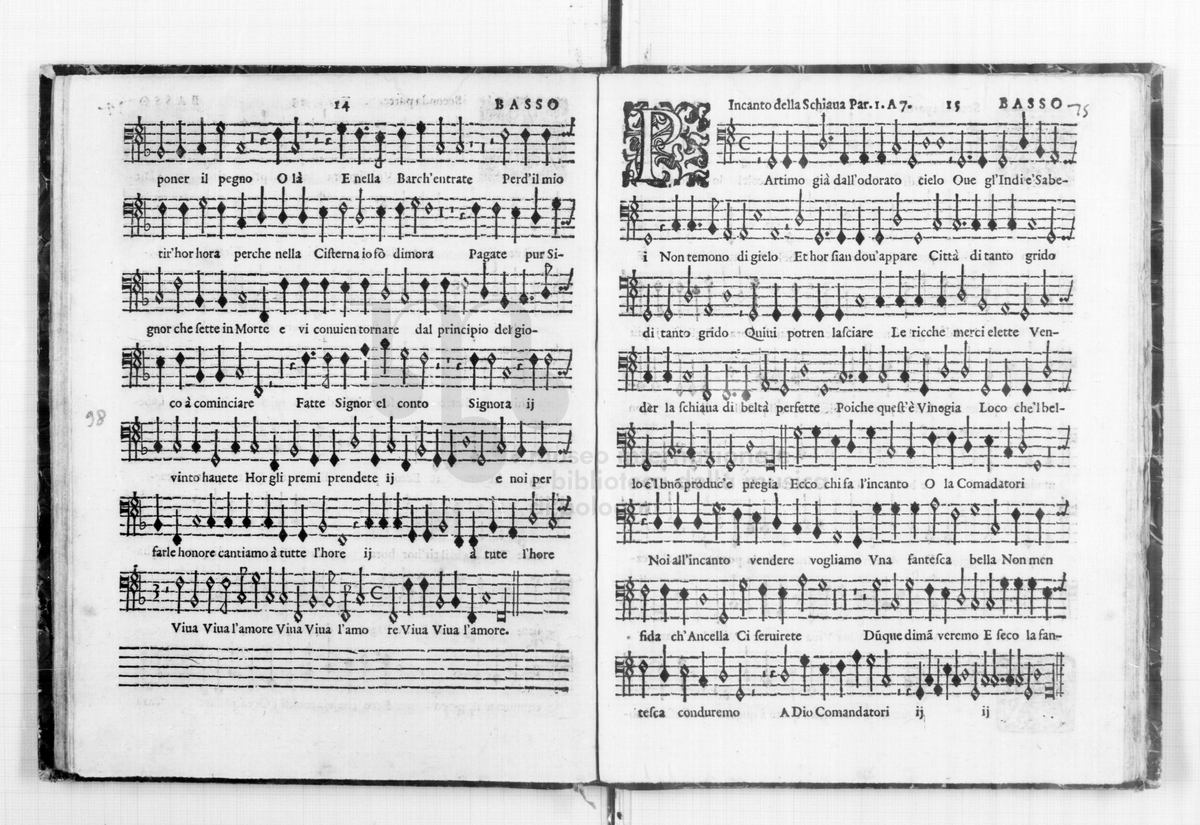 14 BASSO
poner il pegno O là E nella Barch'entrate Perd'il mio
tir'hor hora perche nella Cisterna io fò dimora Pagate pur Si-
gnor che sette in Morte e vi conuien tornare dal principio del gio-
co à cominciare Fatte Signor el conto Signora ij
vinto hauete Hor gli premi prendete ij e noi per
farle honore cantiamo à tutte l'hore ij à tute l'hore
Viua Viua l'amore Viua Viua l'amo re Viua Viua l'amore.
98
Incanto della Schiaua Par. 1. A 7. 15 BASSO
75
PArtimo già dall'odorato cielo Oue gl'Indi e'Sabe-
i Non temono di gielo Et hor sian dou'appare Città di tanto grido
di tanto grido Quiui potren lasciare Le ricche merci elette Ven-
der la schiaua di beltà perfette Poiche quest'è Vinogia Loco che'l bel-
lo e'l buõ produc'e pregia Ecco chi fa l'incanto O la Comadatori
Noi all'incanto vendere vogliamo Vna fantesca bella Non men
fida ch'Ancella Ci seruirete Dũque dimã veremo E seco la fan-
tesca conduremo A Dio Comandatori ij ij